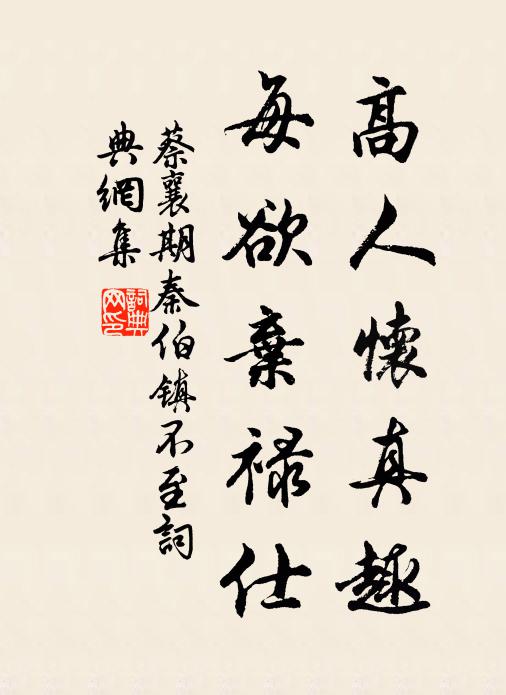 高人懷真趣
每欲棄祿仕
蔡襄期秦伯鎮不至詞
典網集
詞典
网印